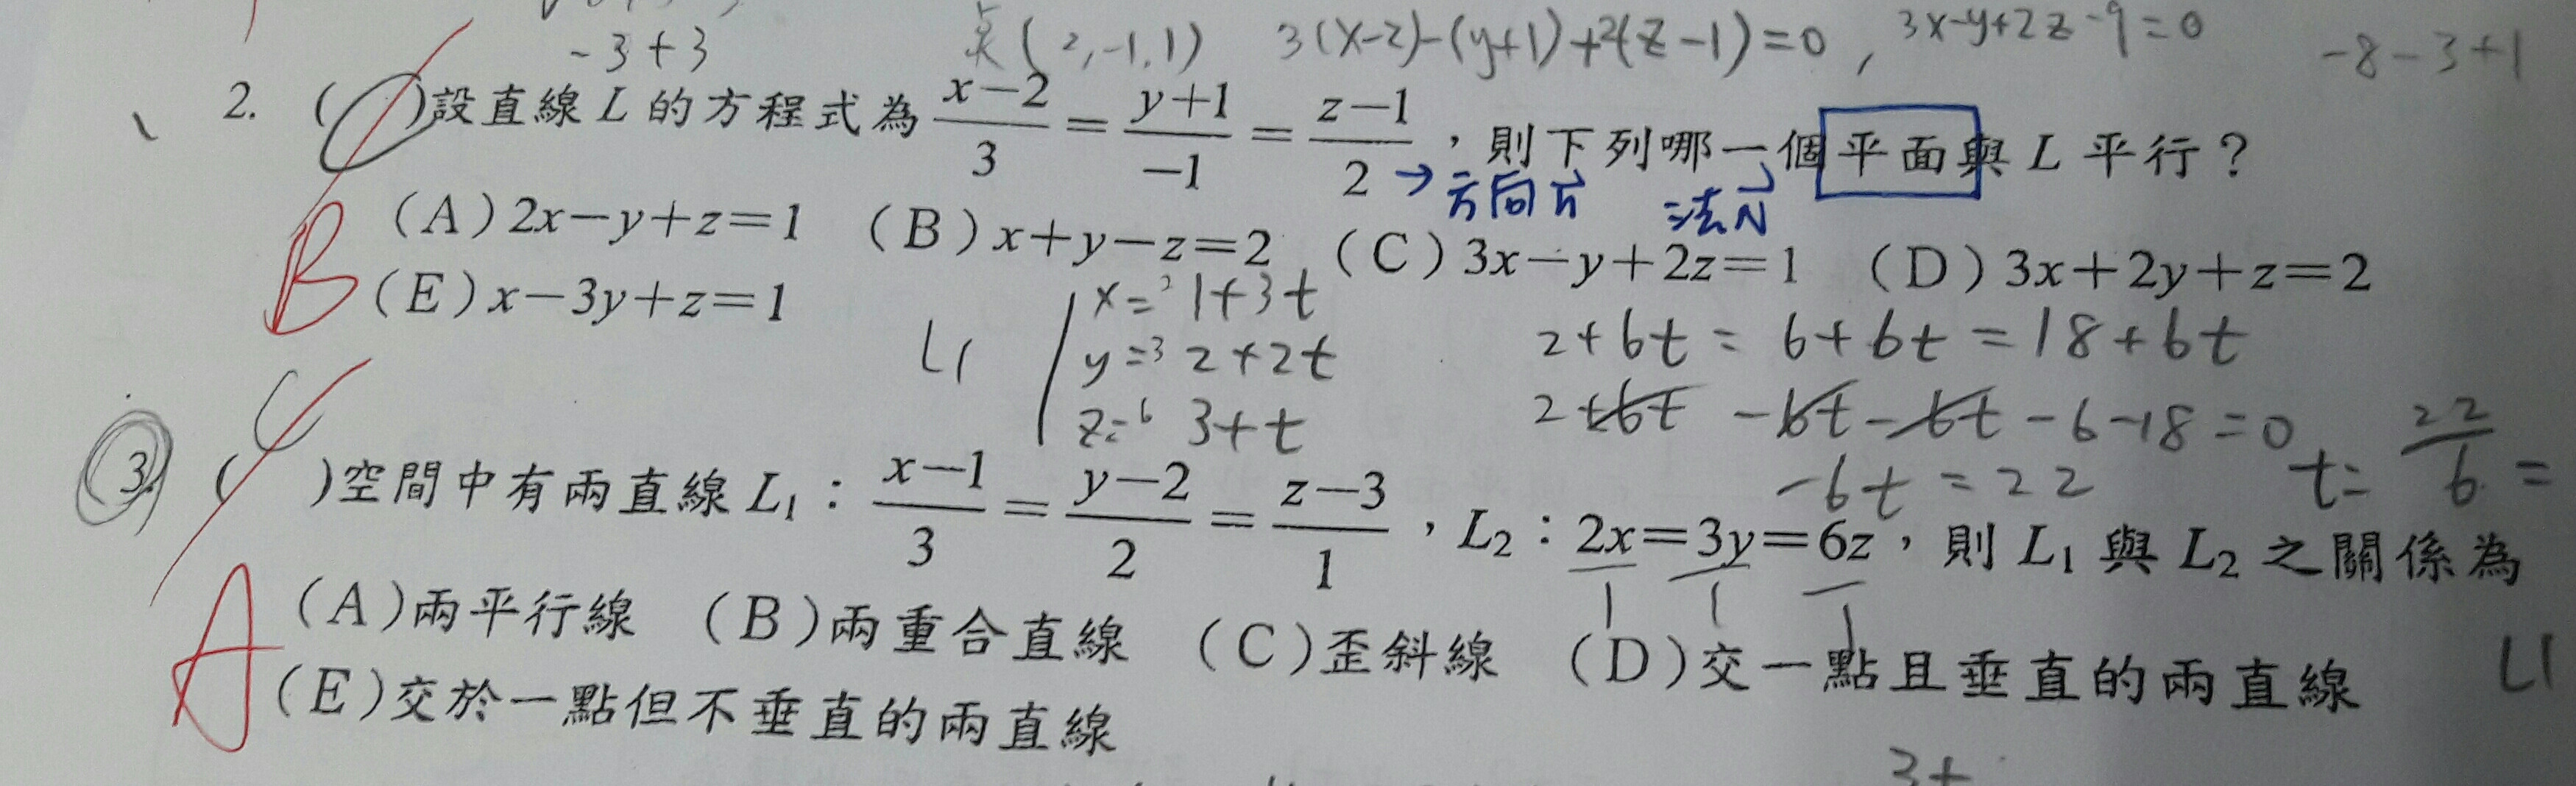 -3+3
點(2,-1,1) 3(x-2)-(y+1)+2(z-1)=0, 3x-y+2z-9=0
-8-3+1
2. ( )設直線 L 的方程式為 (x-2)/3 = (y+1)/-1 = (z-1)/2，則下列哪一個平面與 L 平行？
→方向n 法N
(A) 2x-y+z=1 (B) x+y-z=2 (C) 3x-y+2z=1 (D) 3x+2y+z=2
B
(E) x-3y+z=1
L1
x= 1+3t
y= 2+2t
z= 3+t
2+6t = 6+6t = 18+6t
2+6t-6t-6t-6-18=0
-6t=22
t= 22/6 =
C
3. ( )空間中有兩直線 L₁：(x-1)/3 = (y-2)/2 = (z-3)/1，L₂：2x=3y=6z，則 L₁ 與 L₂ 之關係為
1 1 1
A
(A)兩平行線 (B)兩重合直線 (C)歪斜線 (D)交一點且垂直的兩直線
L1
(E)交於一點但不垂直的兩直線
3+